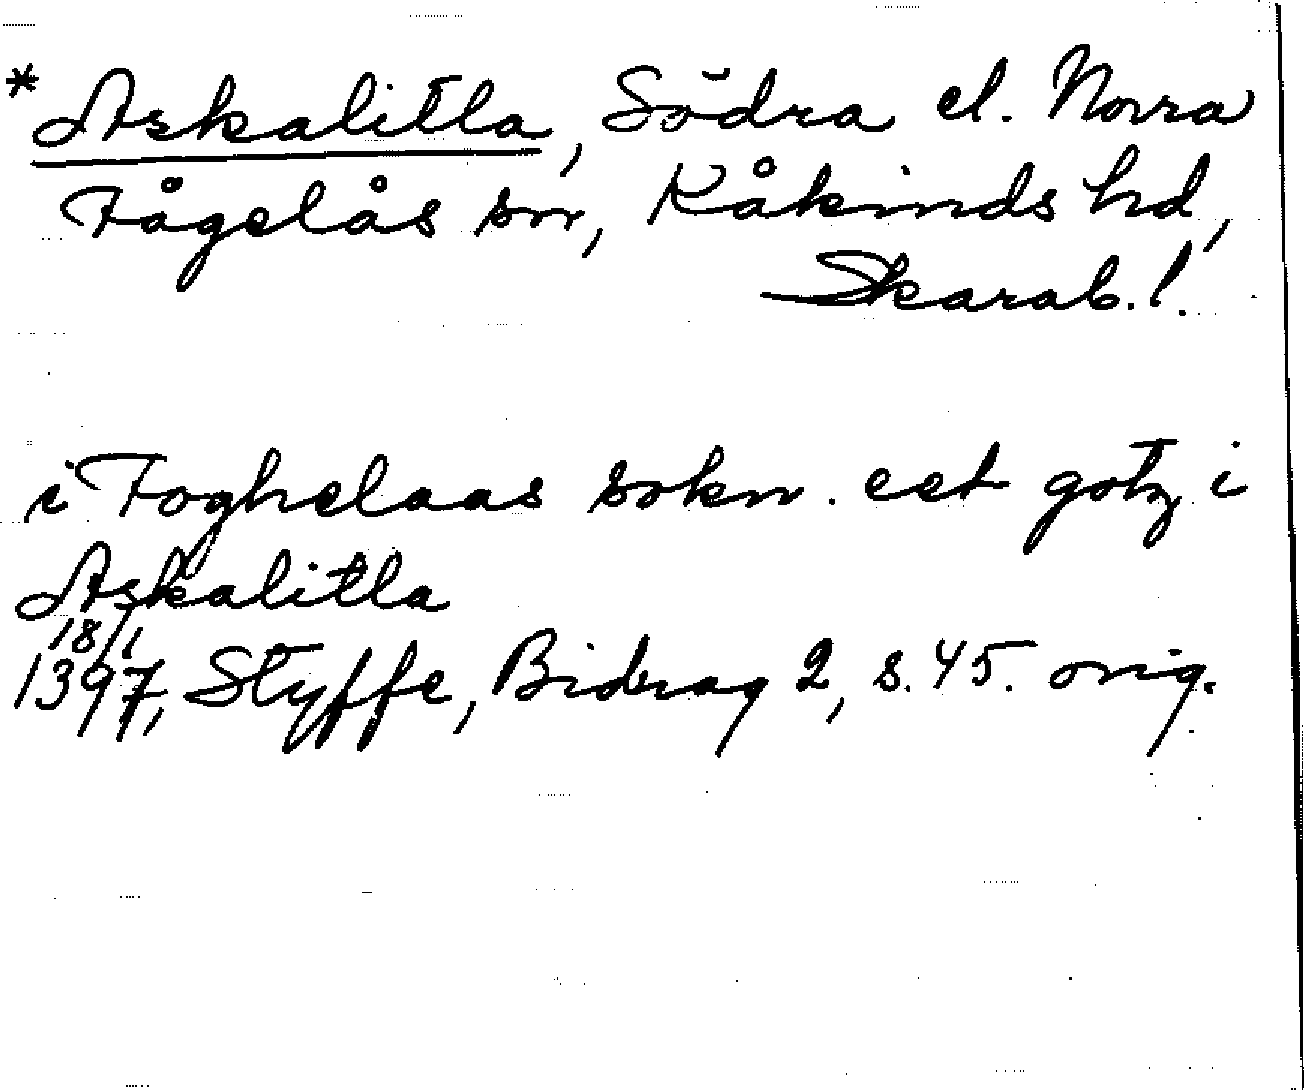 * Askalitla, Södra el. Norra
Fågelås snr, Kåkinds hd,
Skarab. l.
i Foghelaas sokn. eet gotz i
Askalitla
18/1
1397, Styffe, Bidrag 2, s. 45. orig.